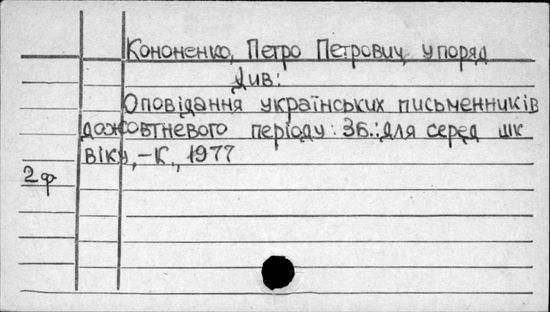 Кононенко, Петро Петрович, упоряд
Див:
Оповідання українських письменників
дожовтневого періоду: Зб.: для серед шк
віку, – К., 1977
2ф